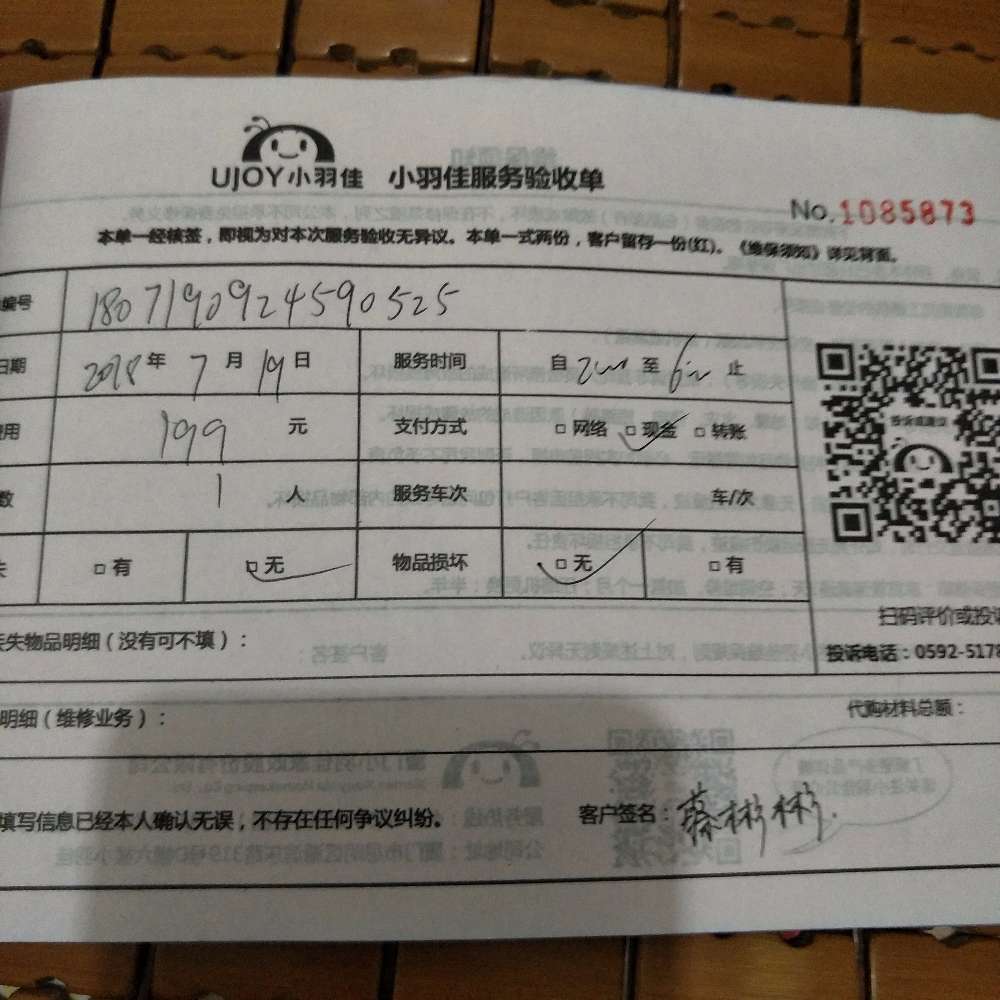 UJOY小羽佳 小羽佳服务验收单
No.1085873
本单一经核签，即视为对本次服务验收无异议。本单一式两份，客户留存一份(红)。《维保须知》详见背面。
编号 180719092459052​5
日期 2018年 7月 19日 服务时间 自 至 止
费用 199 元 支付方式 □网络 □现金 □转账
数 1 人 服务车次 车/次
失 □有 □无 物品损坏 □无 □有
投诉或建议
扫码评价或投诉
丢失物品明细（没有可不填）：
投诉电话：0592-5178
明细（维修业务）：
代购材料总额：
填写信息已经本人确认无误，不存在任何争议纠纷。
客户签名：蔡彬彬